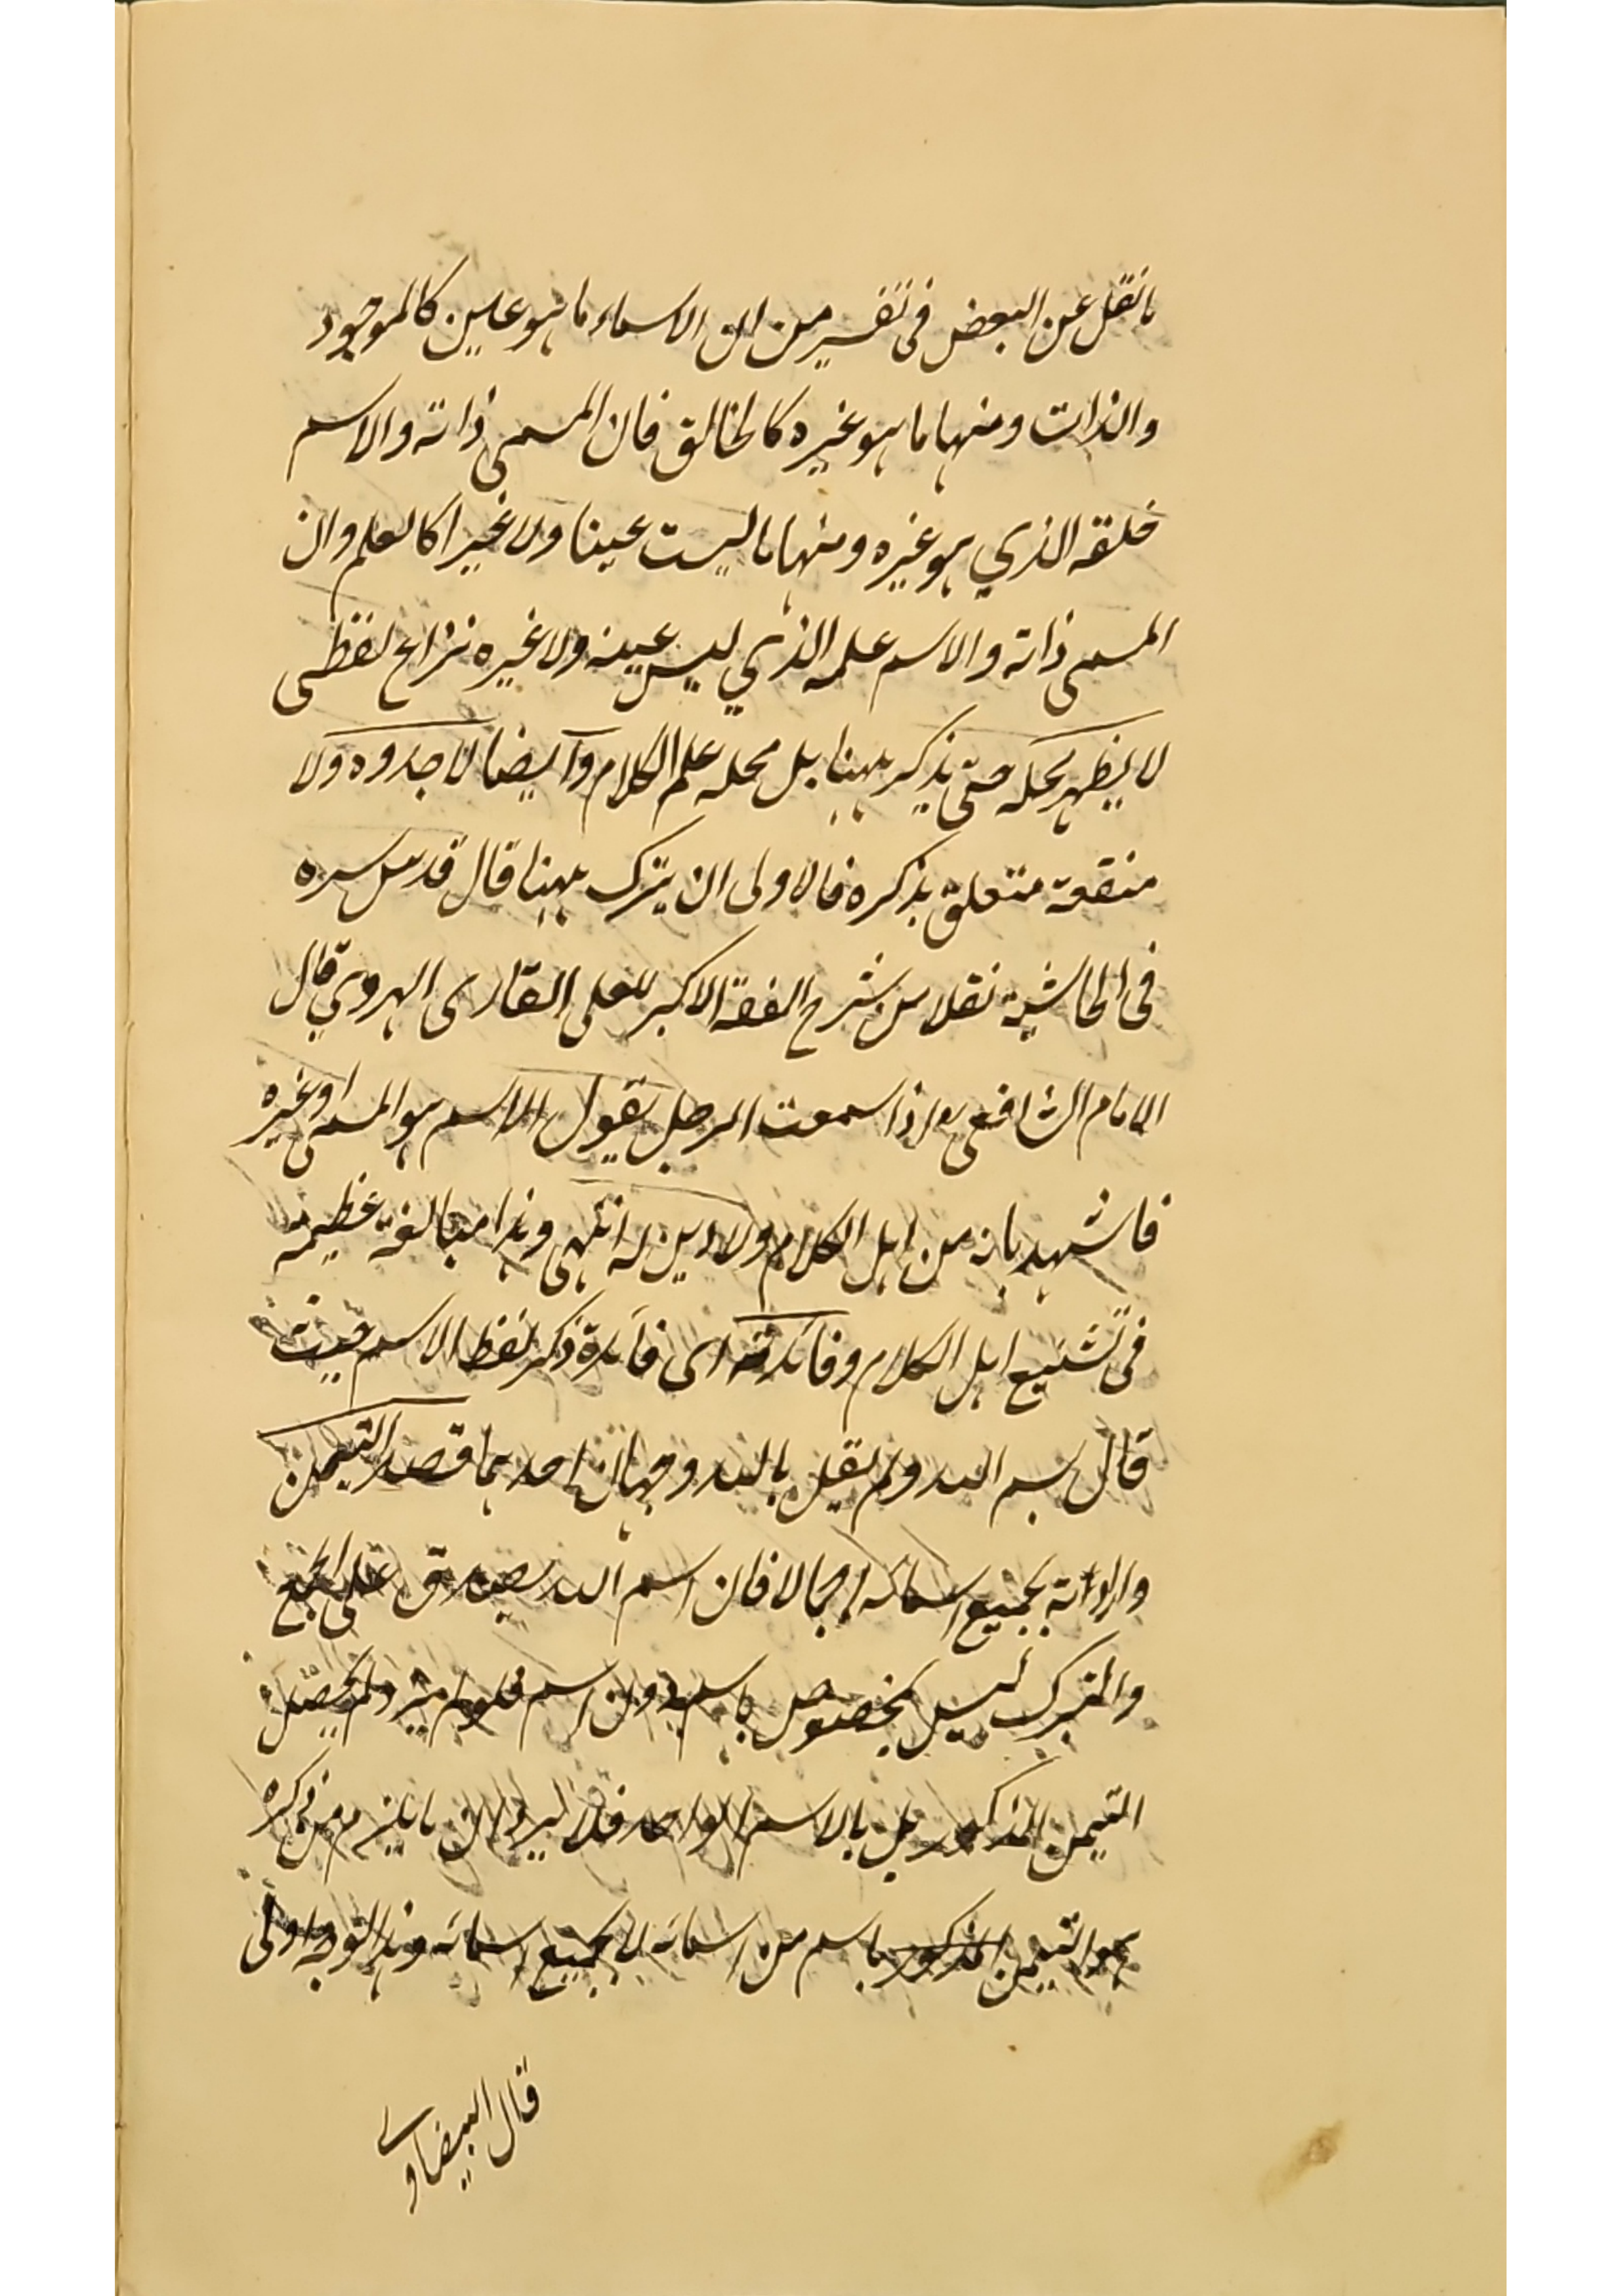 ما نقل عن البعض فى تفسير من ان الاسماء ما هو عين كالموجود
والذات ومنها ما هو غيره كالخالق فان المسمى ذاته والاسم
خلقه الذي هو غيره ومنها ما ليست عينا ولا غيرا كالعلم وان
المسمى ذاته والاسم علمه الذي ليس عينه ولا غيره نزاع لفظى
لا يظهر محله حتى يذكر ههنا بل محله علم الكلام وآيضا لا جدوه ولا
منفعة متعلق بذكره فالاولى ان يترك ههنا قال قدس سره
فى الحاشية نقلا من شرح الفقه الاكبر للعلى القارى الهروي قال
الامام الشافعى اذا سمعت الرجل يقول الاسم هو المسمى او غيره
فاشهد بانه من اهل الكلام ولا دين له انتهى وهذا مبالغة عظيمة
فى تشنيع اهل الكلام وفائدته اى فائدة ذكر لفظ الاسم حيث
قال بسم الله ولم يقل بالله وجهان احدهما قصد التيمن
بجميع اسمائه اجمالا فان اسم الله يصدق على الجميع
والتبرك ليس بخصوص باسم دون اسم فلو لم يحصل
التيمن المذكور بل بالاسم الواحد فلا يرد ان ما يلزم من ذكره
هو التيمن المذكور باسم من اسمائه لا بجميع اسمائه وهذا التوجه اولى
قال البيضاوي